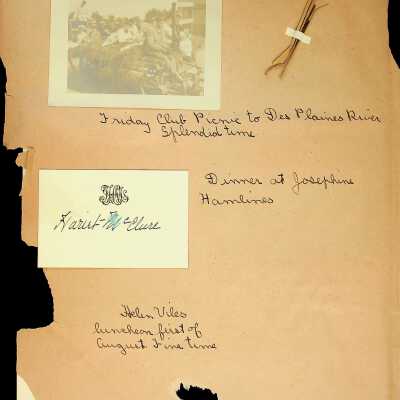 Friday Club Picnic to Des Plaines River
Splendid time
Dinner at Josephine
Hamlines
Harist McClure
Helen Viles
luncheon first of
August Fine time